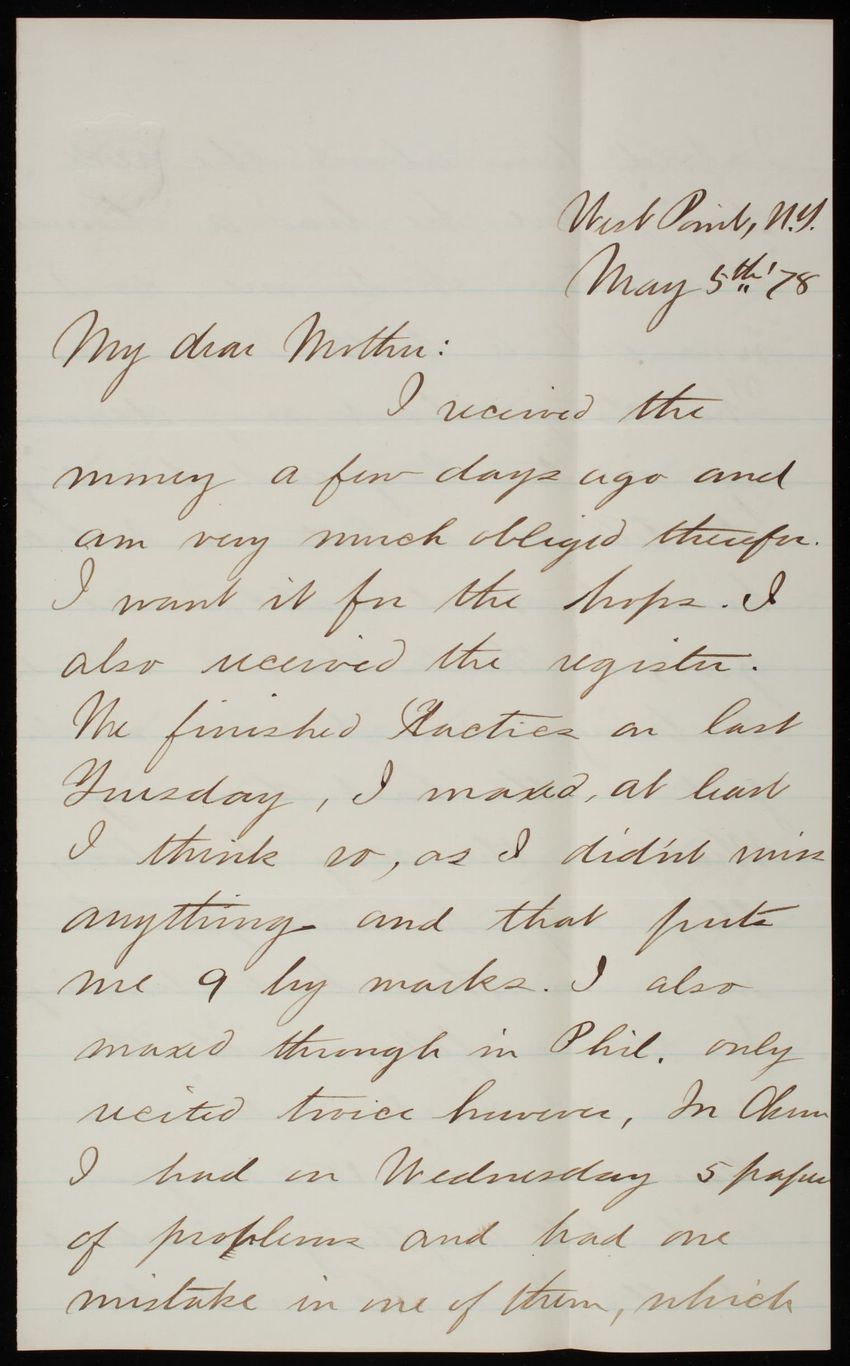 West Point, N.Y.
May 5th '78
My dear Mother:
I received the
money a few days ago and
am very much obliged therefor.
I want it for the hops. I
also received the register.
We finished Tactics on last
Tuesday, I maxed, at least
I think so, as I did'nt miss
anything and that puts
me 9 by marks. I also
maxed through in Phil. only
recited twice however, In Chem
I had on Wednesday 5 pages
of problems and had one
mistake in one of them, which